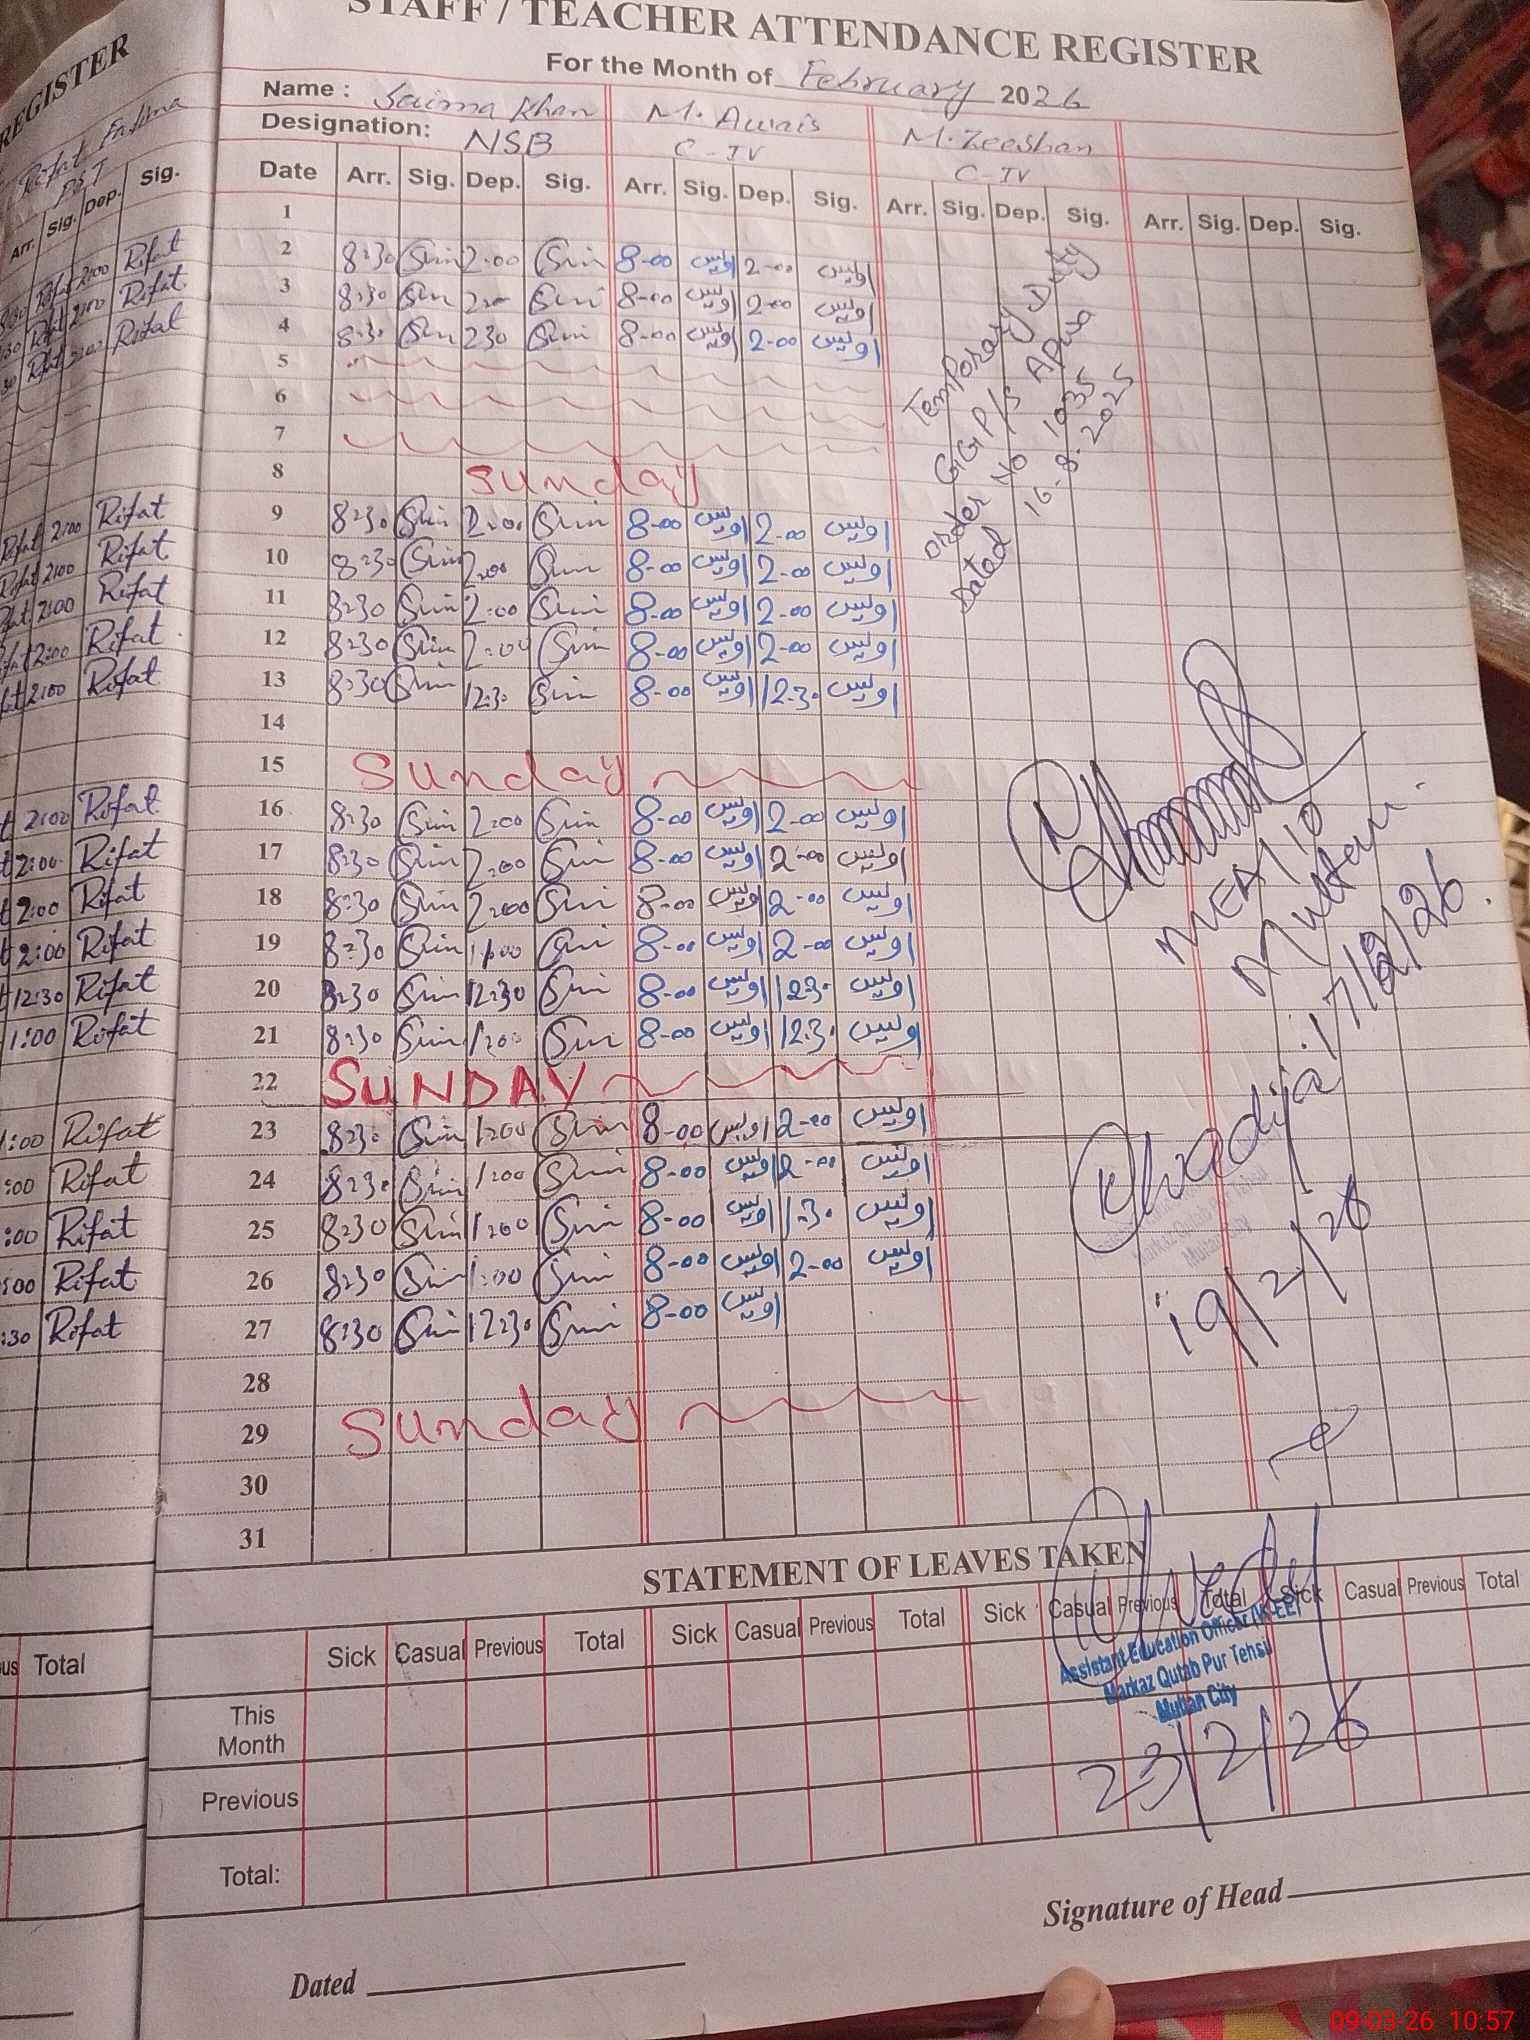 STAFF / TEACHER ATTENDANCE REGISTER
For the Month of February 2026
Name : Saima Khan M. Awais M. Zeeshan
Designation: NSB C-IV C-IV
Date Arr. Sig. Dep. Sig. Arr. Sig. Dep. Sig. Arr. Sig. Dep. Sig. Arr. Sig. Dep. Sig.
1
2 8:30 2:00 8-00 اویس 2-00 اویس
3 8:30 8-00 اویس 2-00 اویس
4 8:30 230 8-00 اویس 2-00 اویس
5
6
7
8 Sunday
9 8:30 2:00 8-00 اویس 2-00 اویس
10 8:30 2:00 8-00 اویس 2-00 اویس
11 8:30 2:00 8-00 اویس 2-00 اویس
12 8:30 2:00 8-00 اویس 2-00 اویس
13 8:30 12:30 8-00 اویس 12:30 اویس
14
15 Sunday
16 8:30 2:00 8-00 اویس 2-00 اویس
17 8:30 2:00 8-00 اویس 2-00 اویس
18 8:30 2:00 8-00 اویس 2-00 اویس
19 8:30 8-00 اویس 2-00 اویس
20 8:30 12:30 8-00 اویس 12:30 اویس
21 8:30 8-00 اویس 12:30 اویس
22 SUNDAY
23 8:30 1:00 8-00 اویس 2-00 اویس
24 8:30 1:00 8-00 اویس 2-00 اویس
25 8:30 1:00 8-00 اویس 1:30 اویس
26 8:30 1:00 8-00 اویس 2-00 اویس
27 8:30 12:30 8-00 اویس
28
29 Sunday
30
31
Temporary Duty
GGP/S
Order No 1035
Dated 16-8-2025
MEA/10
Multan
17/2/26
Khadija
19/2/26
STATEMENT OF LEAVES TAKEN
Sick Casual Previous Total Sick Casual Previous Total Sick Casual Previous Total Sick Casual Previous Total
This Month
Previous
Total:
Assistant Education Officer (W-EE)
Markaz Qutab Pur Tehsil
Multan City
23/2/26
Signature of Head
Dated
REGISTER
Rifat Fatima
PST
Arr. Sig. Dep. Sig.
2:00 Rifat
2:00 Rifat
Rifat
2:00 Rifat
2:00 Rifat
2:00 Rifat
2:00 Rifat
2:00 Rifat
2:00 Rifat
2:00 Rifat
2:00 Rifat
2:00 Rifat
12:30 Rifat
1:00 Rifat
1:00 Rifat
:00 Rifat
:00 Rifat
:00 Rifat
:30 Rifat
Total
09-03-26 10:57